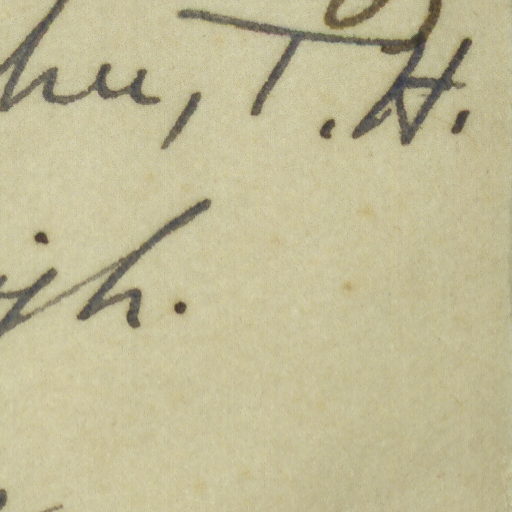 hu, T.H.
igh.